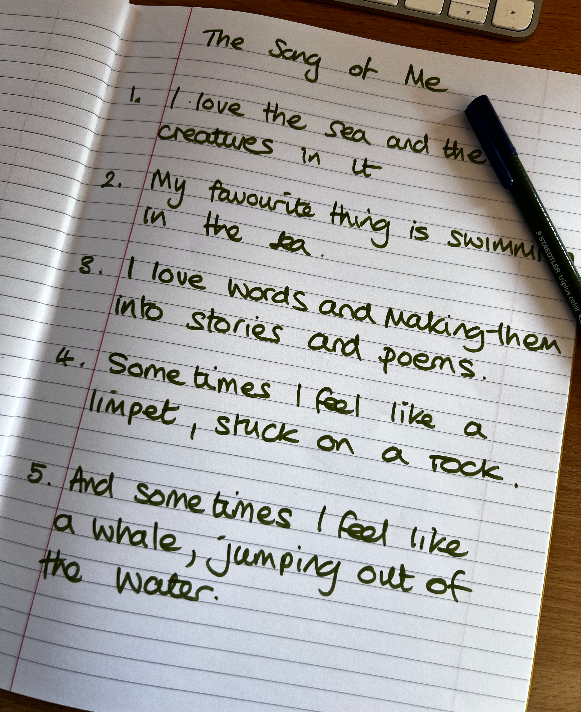 The Song of Me
1. I love the sea and the
creatures in it
2. My favourite thing is swimmin
in the sea.
3. I love words and making them
into stories and poems.
4. Sometimes I feel like a
limpet, stuck on a rock.
5. And sometimes I feel like
a whale, jumping out of
the water.
STAEDTLER triplus color